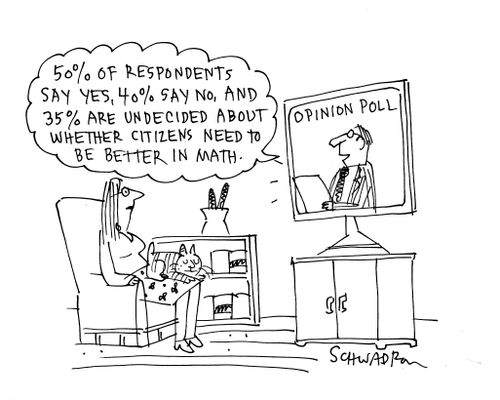 50% OF RESPONDENTS
SAY YES, 40% SAY NO, AND
35% ARE UNDECIDED ABOUT
WHETHER CITIZENS NEED TO
BE BETTER IN MATH.
OPINION POLL
SCHWADRON